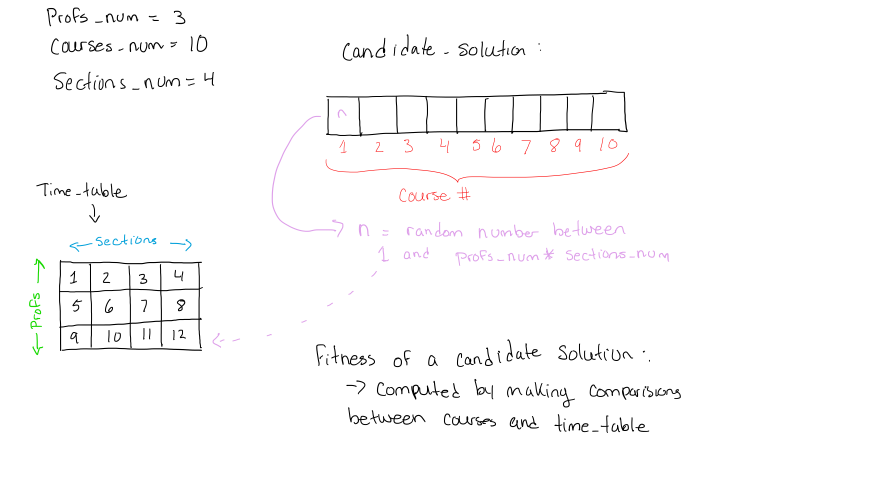 Profs_num = 3
Courses_num = 10
Sections_num = 4
Candidate_solution :
n
1 2 3 4 5 6 7 8 9 10
Course #
n = random number between
1 and profs_num * sections_num
Time_table
Sections
Profs
1 2 3 4
5 6 7 8
9 10 11 12
Fitness of a candidate solution :.
-> Computed by making comparisions
between courses and time_table